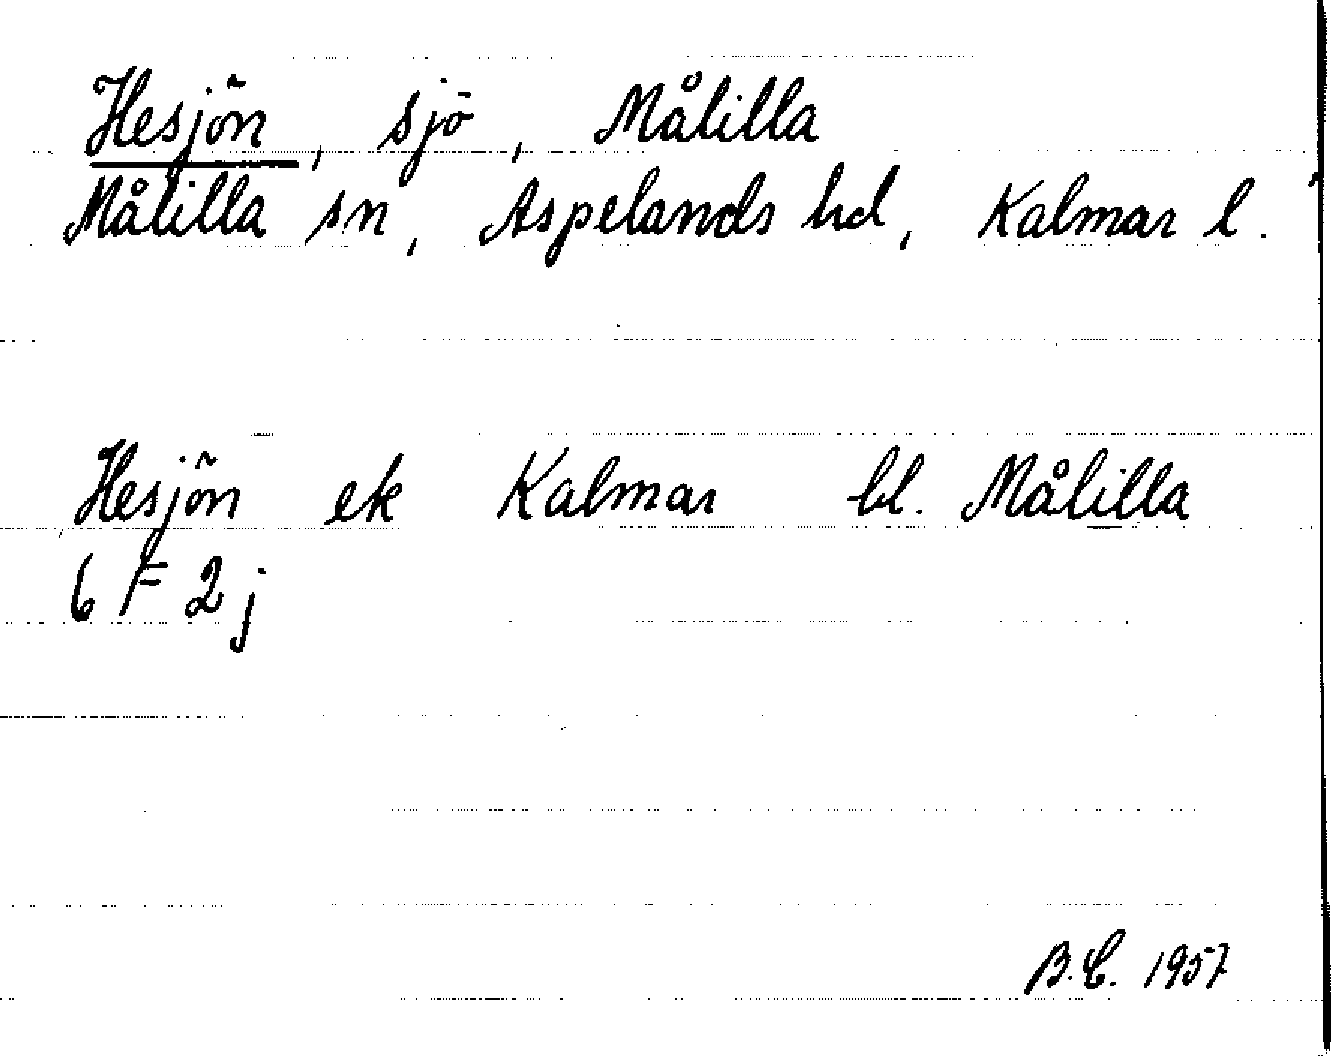 Hesjön, sjö, Målilla
Målilla sn, Aspelands hd, Kalmar l.
Hesjön ek Kalmar bl. Målilla
6 F 2 j
B.C. 1957